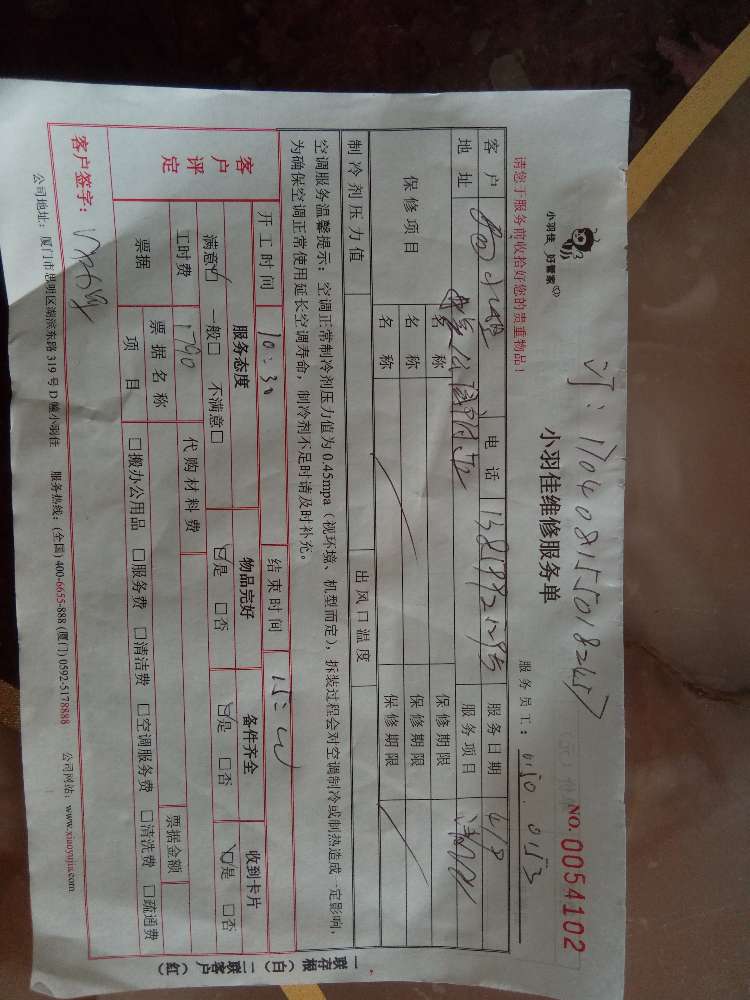 小羽佳 好管家
小羽佳维修服务单
NO. 0054102
请您于服务前收拾好您的贵重物品！
服务员工：0150.0153
客户 电话 服务日期 4/9
地址 服务项目
保修项目 名称 保修期限
名称 保修期限
名称 保修期限
制冷剂压力值 出风口温度
空调服务温馨提示：空调正常制冷剂压力值为0.45mpa（视环境、机型而定），拆装过程会对空调制冷或制热造成一定影响，
为确保空调正常使用延长空调寿命，制冷剂不足时请及时补充。
客户评定 开工时间 10:30 结束时间
服务态度 物品完好 备件齐全 收到卡片
满意☑ 一般□ 不满意□ ☑是 □否 ☑是 □否 ☑是 □否
工时费 1790 代购材料费
票据 票据名称 票据金额
项目 □搬办公用品 □服务费 □清洁费 □空调服务费 □清洗费 □疏通费
客户签字：
公司地址：厦门市思明区湖滨东路319号D幢小羽佳 服务热线：(全国) 400-6655-888 (厦门) 0592-5178888 公司网站：www.xiaoyujia.com
一联存根（白）二联客户（红）